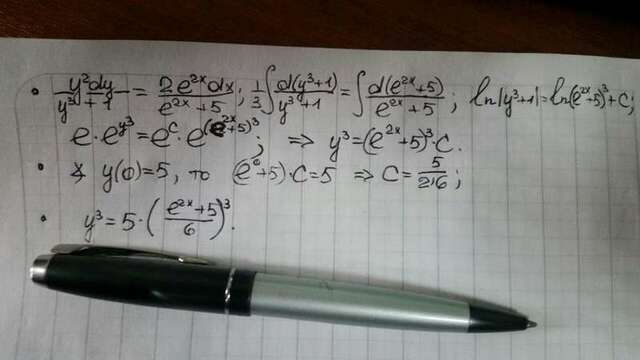 • y²dy/(y³+1) = 2e^{2x}dx/(e^{2x}+5); 1/3∫d(y³+1)/(y³+1) = ∫d(e^{2x}+5)/(e^{2x}+5); ln|y³+1|=ln(e^{2x}+5)³+C;
e·e^{y³}=e^{C}·e^{(e^{2x}+5)³}; ⇒ y³=(e^{2x}+5)³·C.
• y(0)=5, то (e⁰+5)·C=5 ⇒ C=5/216;
• y³=5·((e^{2x}+5)/6)³.